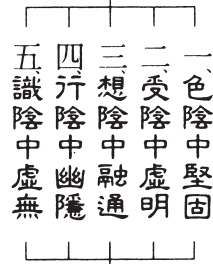 一、色陰中堅固
二、受陰中虛明
三、想陰中融通
四、行陰中幽隱
五、識陰中虛無